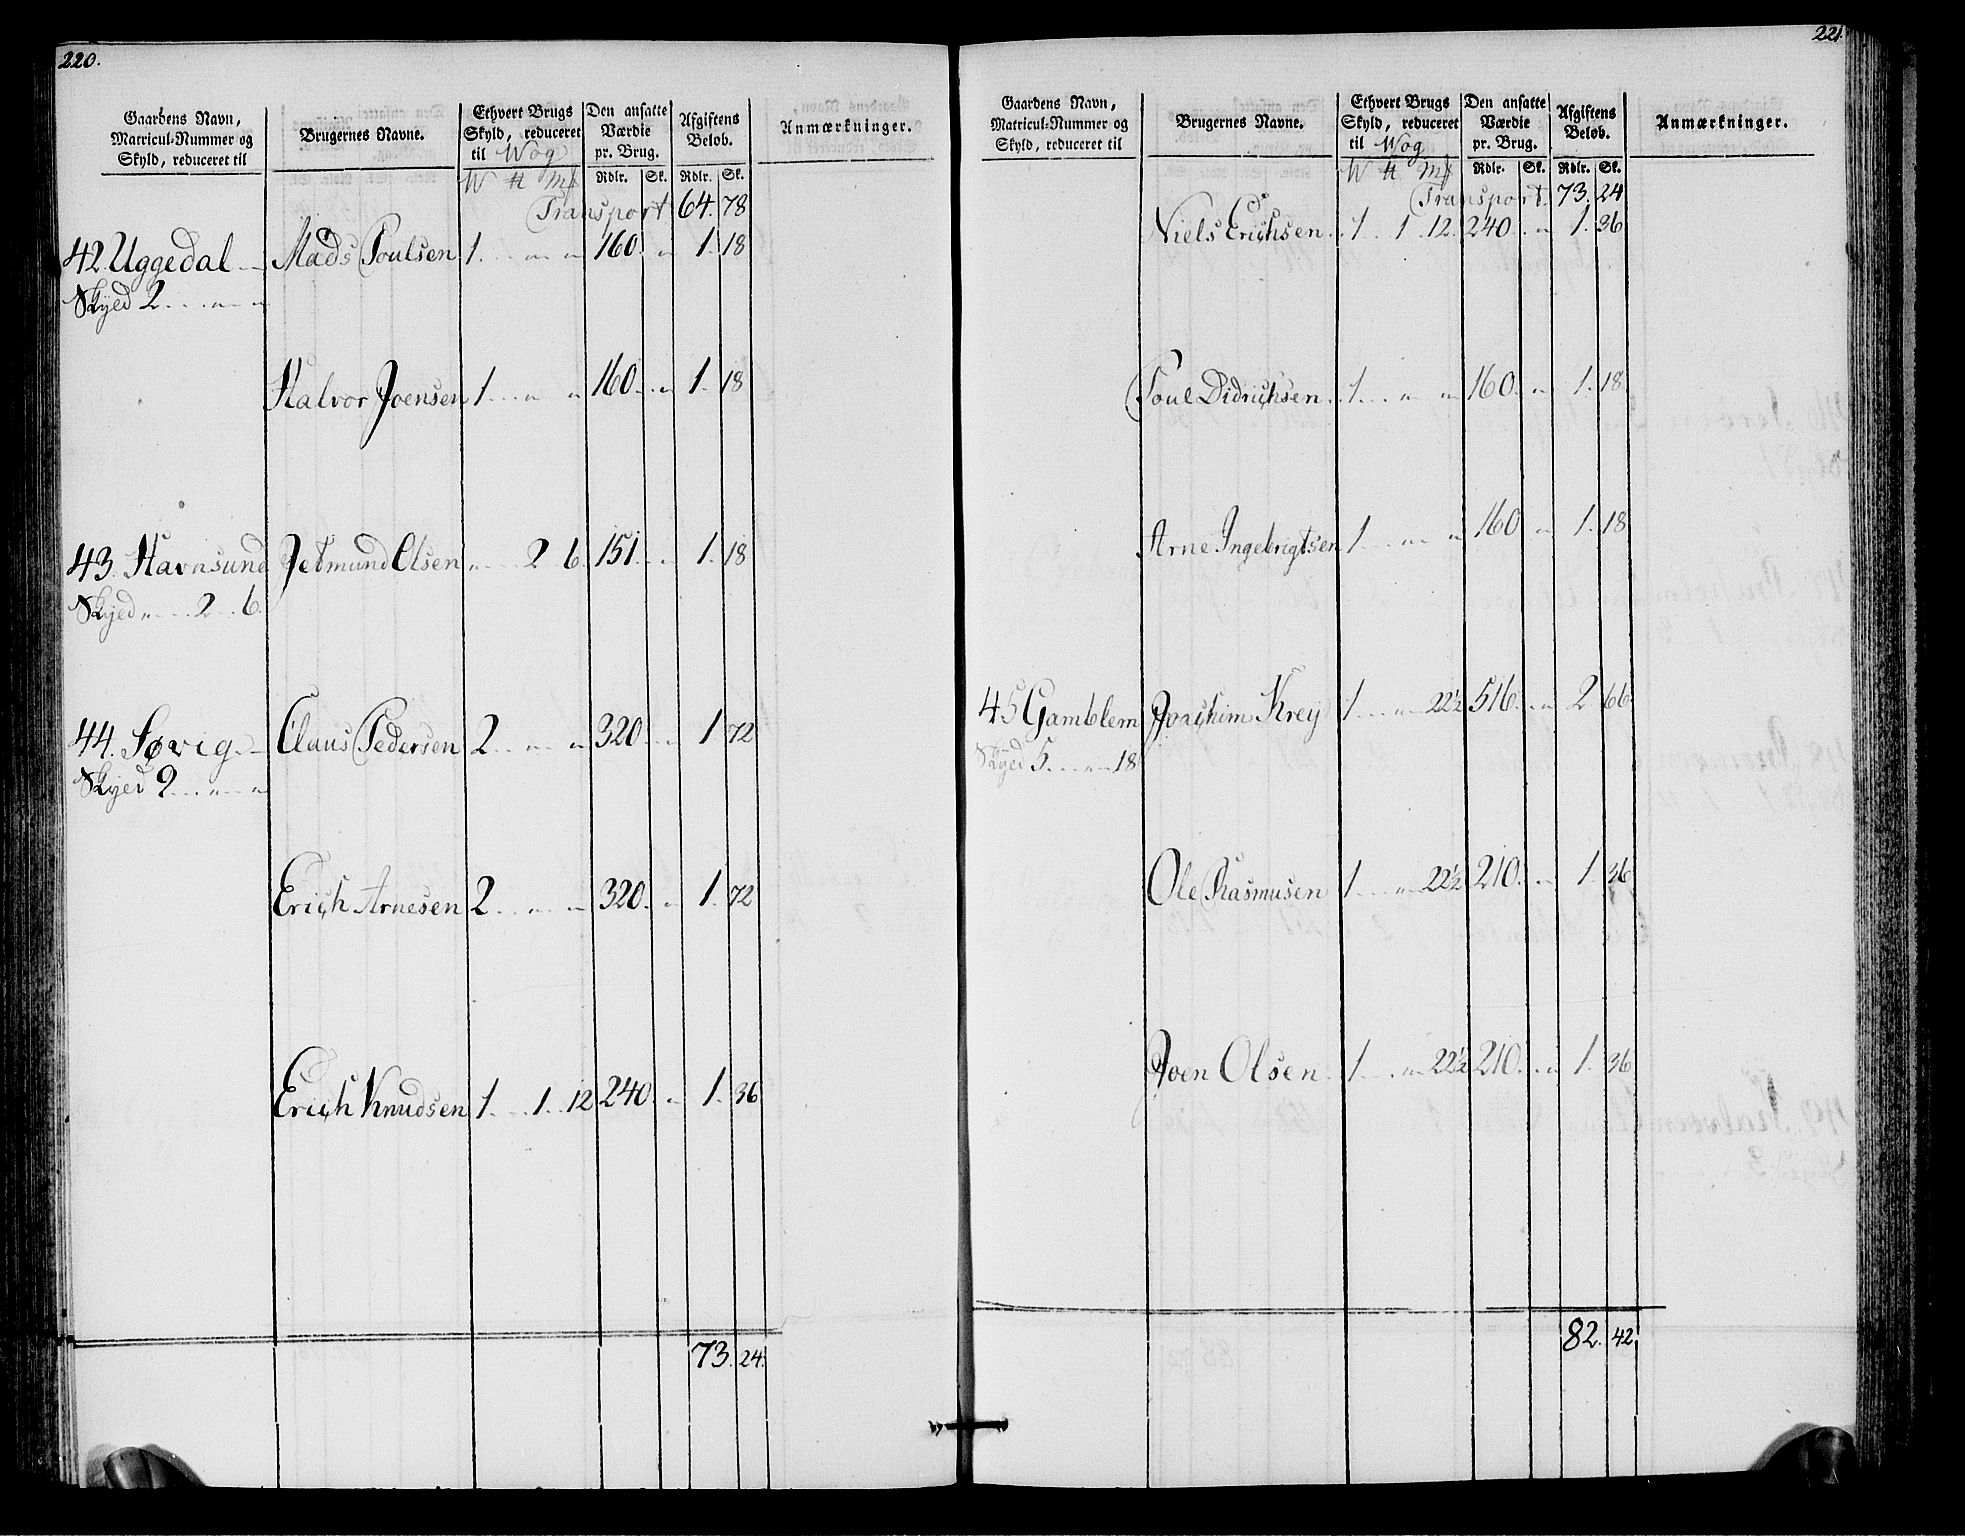 220.
Gaardens Navn, Matricul-Nummer og Skyld, reduceret til
Brugernes Navne.
Ethvert Brugs Skyld, reduceret til Wog
Den ansatte Værdie pr. Brug.
Afgiftens Beløb.
Anmærkninger.
Rdlr. Sk. Rdlr. Sk.
Transport 64. 78
42. Uggedal Mads Poulsen 1. „ „ 160. „ 1. 18
Skyld 2 „ „
Halvor Joensen 1 „ „ 160. „ 1. 18
43. Havnsund Jetmund Olsen „ 2 6. 151. „ 1. 18
Skyld „ 2 6.
44. Søvig Claus Pedersen 2 „ „ 320 „ 1 72
Skyld 9 „ „
Erich Arnesen 2 „ „ 320. „ 1. 72
Erich Knudsen 1. 1. 12 240. „ 1. 36
73. 24.
221.
Gaardens Navn, Matricul-Nummer og Skyld, reduceret til
Brugernes Navne.
Ethvert Brugs Skyld, reduceret til Wog
Den ansatte Værdie pr. Brug.
Afgiftens Beløb.
Anmærkninger.
Rdlr. Sk. Rdlr. Sk.
Transport. 73. 24
Niels Erichsen 1 1 12. 240 „ 1. 36
Poul Didrichsen. 1 „ „ 160. „ 1. 18.
Arne Ingebrigtsen 1 „ „ 160 „ 1. 18
45 Gamblem Joachim Krey 1 „ 22½ 516. „ 2 66
Skyld 5. „ 18
Ole Rasmusen 1 „ 22½ 210. „ 1. 36
Joen Olsen 1 „ 22½ 210. „ 1. 36
82. 42.